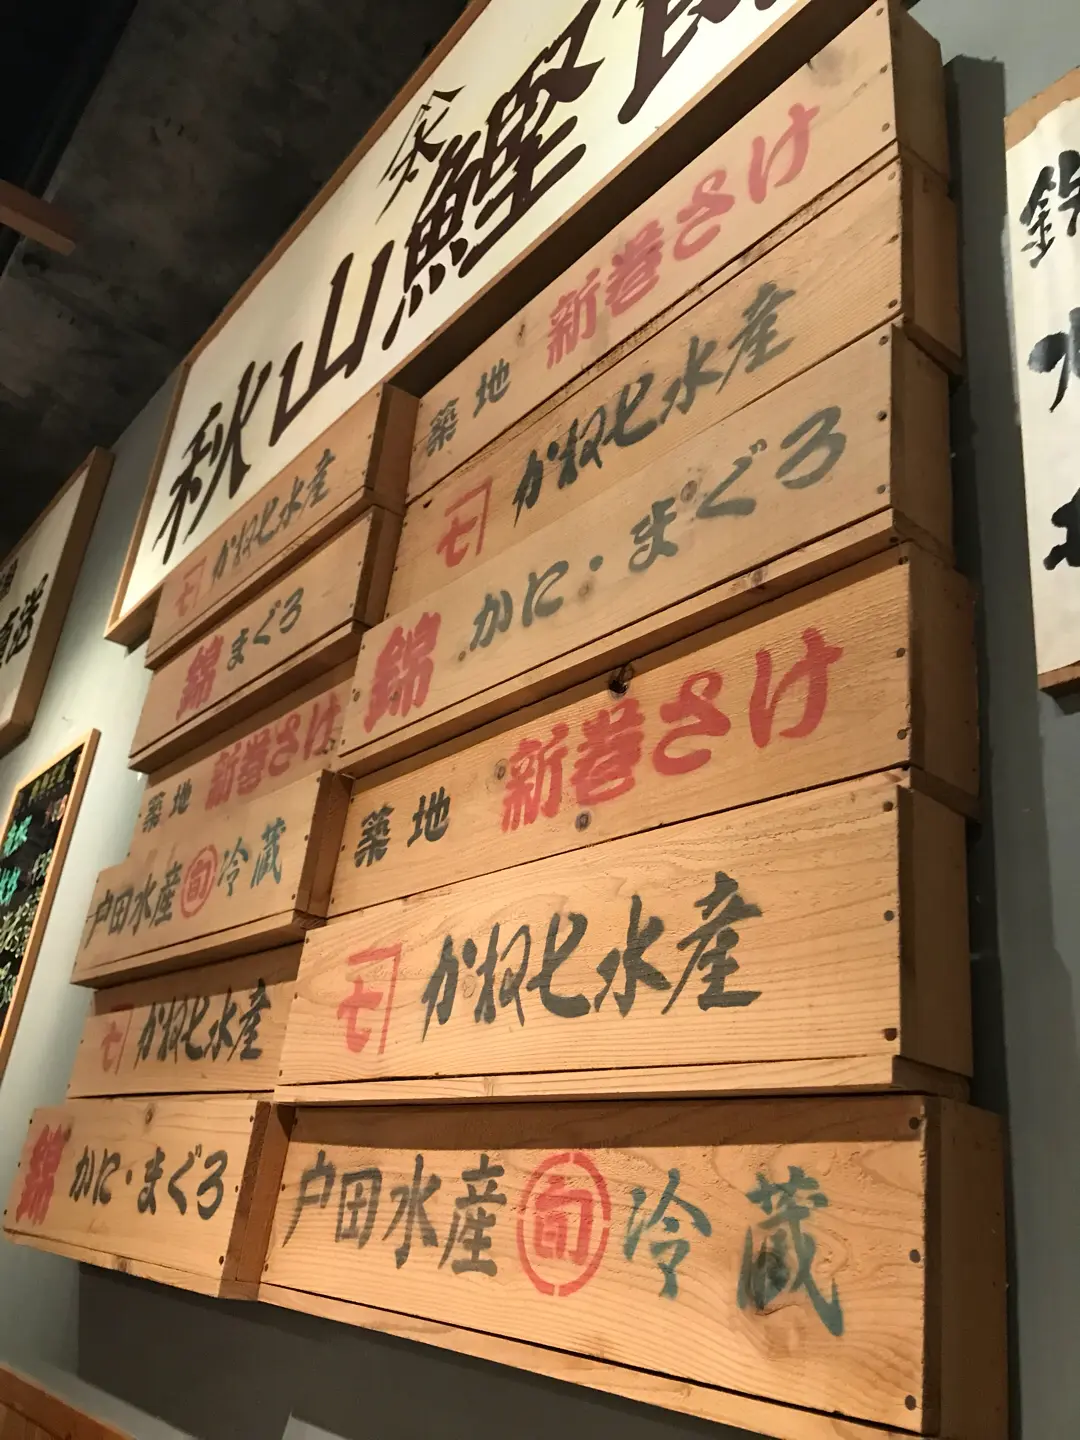 秋山鰹
築地 新巻さけ
かね七水産
錦 かに・まぐろ
築地 新巻さけ
かね七水産
戸田水産 旬 冷蔵
かね七水産
錦 まぐろ
築地 新巻さけ
戸田水産 旬 冷蔵
かね七水産
錦 かに・まぐろ
直送
水